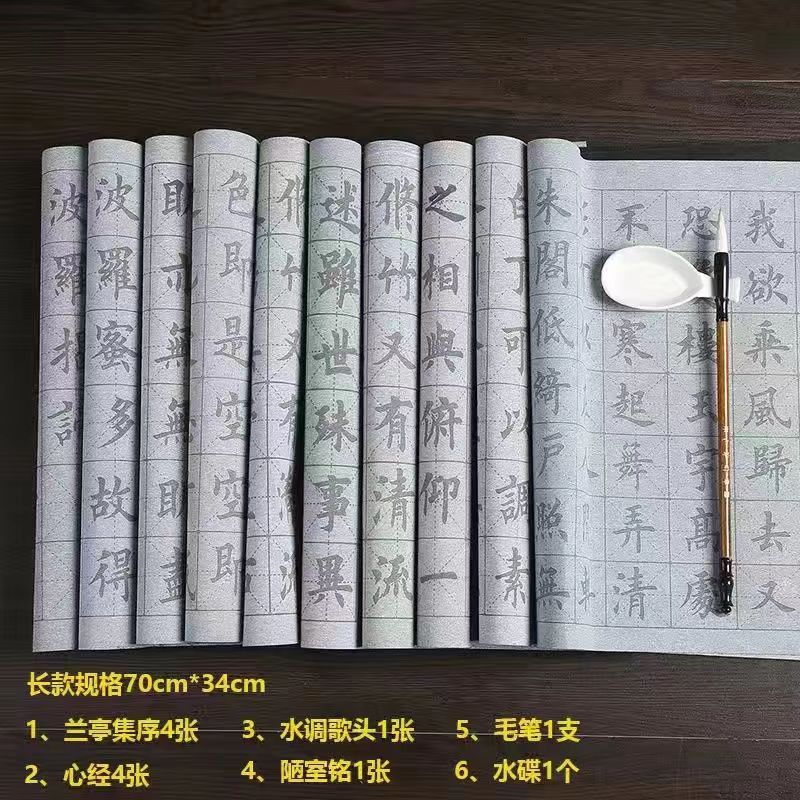 我欲乘風歸去又
恐樓玉宇髙處
不寒起舞弄清
朱閣低綺戶照無
白丁可以調素
之相與俯仰一
修竹又有清流
述雖世殊事異
竹又有
色即是空空即
亦無無明盡
波羅蜜多故得
波羅
长款规格70cm*34cm
1、兰亭集序4张 3、水调歌头1张 5、毛笔1支
2、心经4张 4、陋室铭1张 6、水碟1个